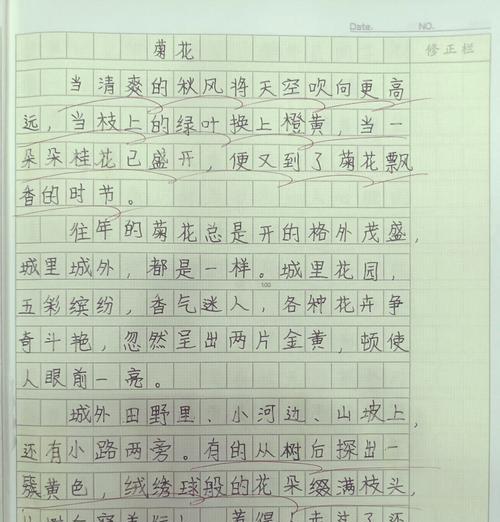 Date. NO.
修正栏
菊花
当清爽的秋风将天空吹向更高
远,当枝上的绿叶换上橙黄,当一
朵朵桂花已盛开,便又到了菊花飘
香的时节。
往年的菊花总是开的格外茂盛,
城里城外,都是一样。城里花园,
五彩缤纷,香气迷人,各种花卉争
100
奇斗艳,忽然呈出两片金黄,顿使
人眼前一亮。
城外田野里、小河边、山坡上,
还有小路两旁。有的从树后探出一
簇黄色,绒绣球般的花朵缀满枝头,